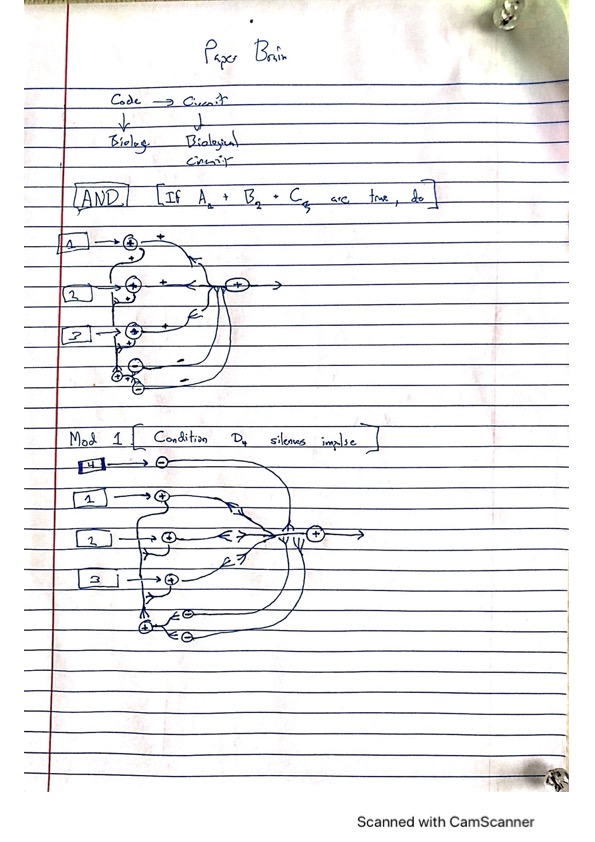 Paper Brain
Code → Circuit
↓ ↓
Biolog. Biological
circuit
AND [If A1 + B2 + C3 are true, do]
1 + +
+
2 + +
+
3 + +
+
- -
+ + - -
Mod 1 [Condition D4 silences impulse]
4 -
1 +
2 + +
3 +
-
+ -
Scanned with CamScanner